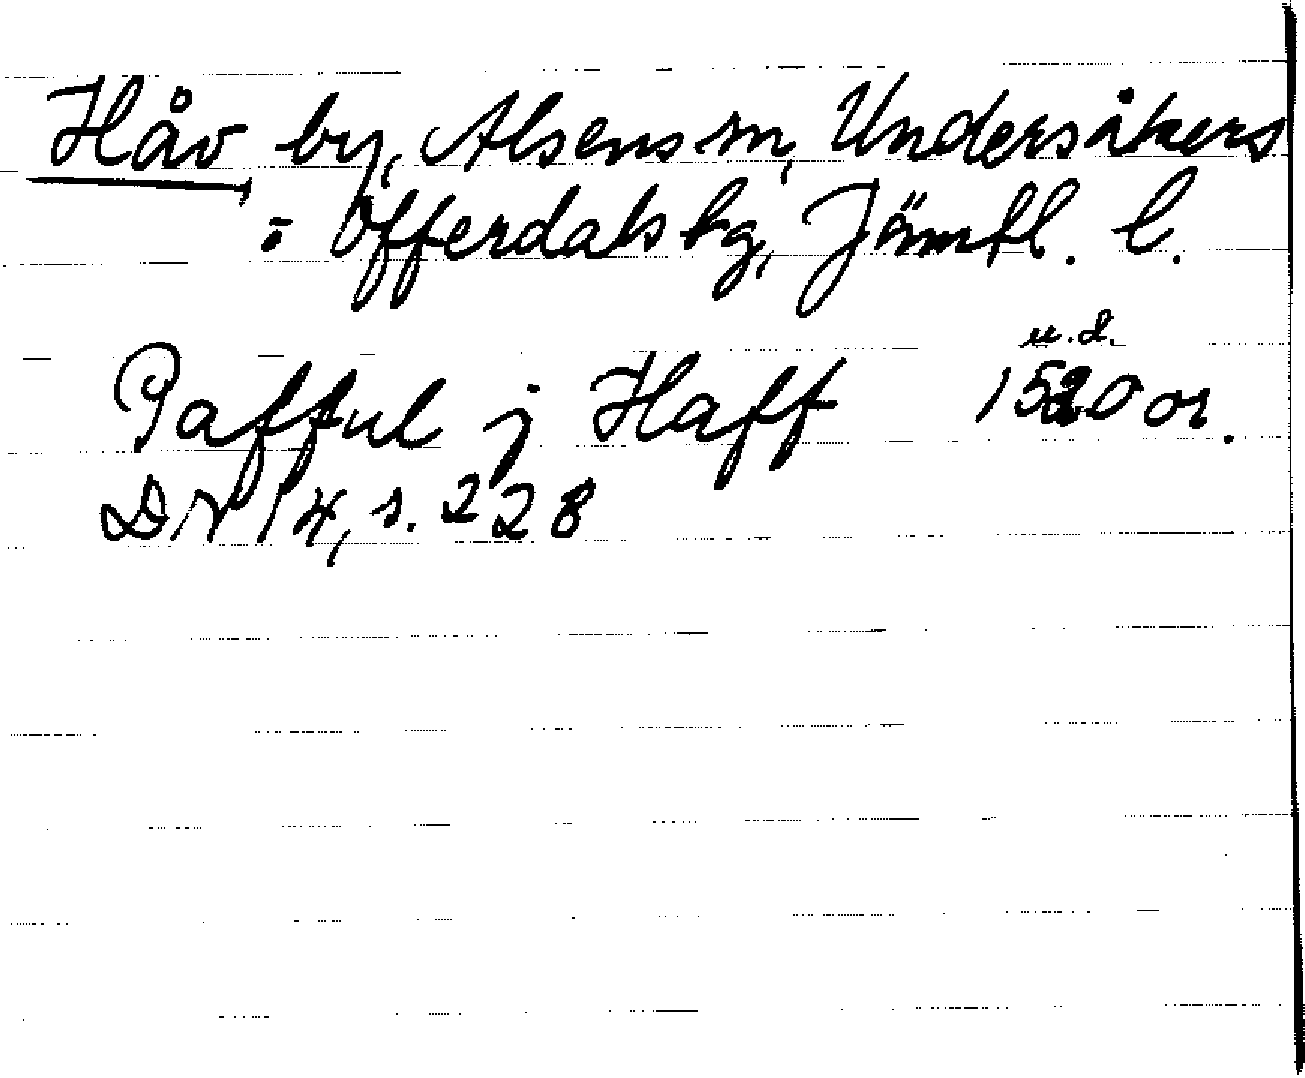 Håv by, Alsens sn, Undersåkers
o. Offerdals tg, Jämtl. l.
u.d.
Pafful j Haff 1520 or.
DN 14, s. 228